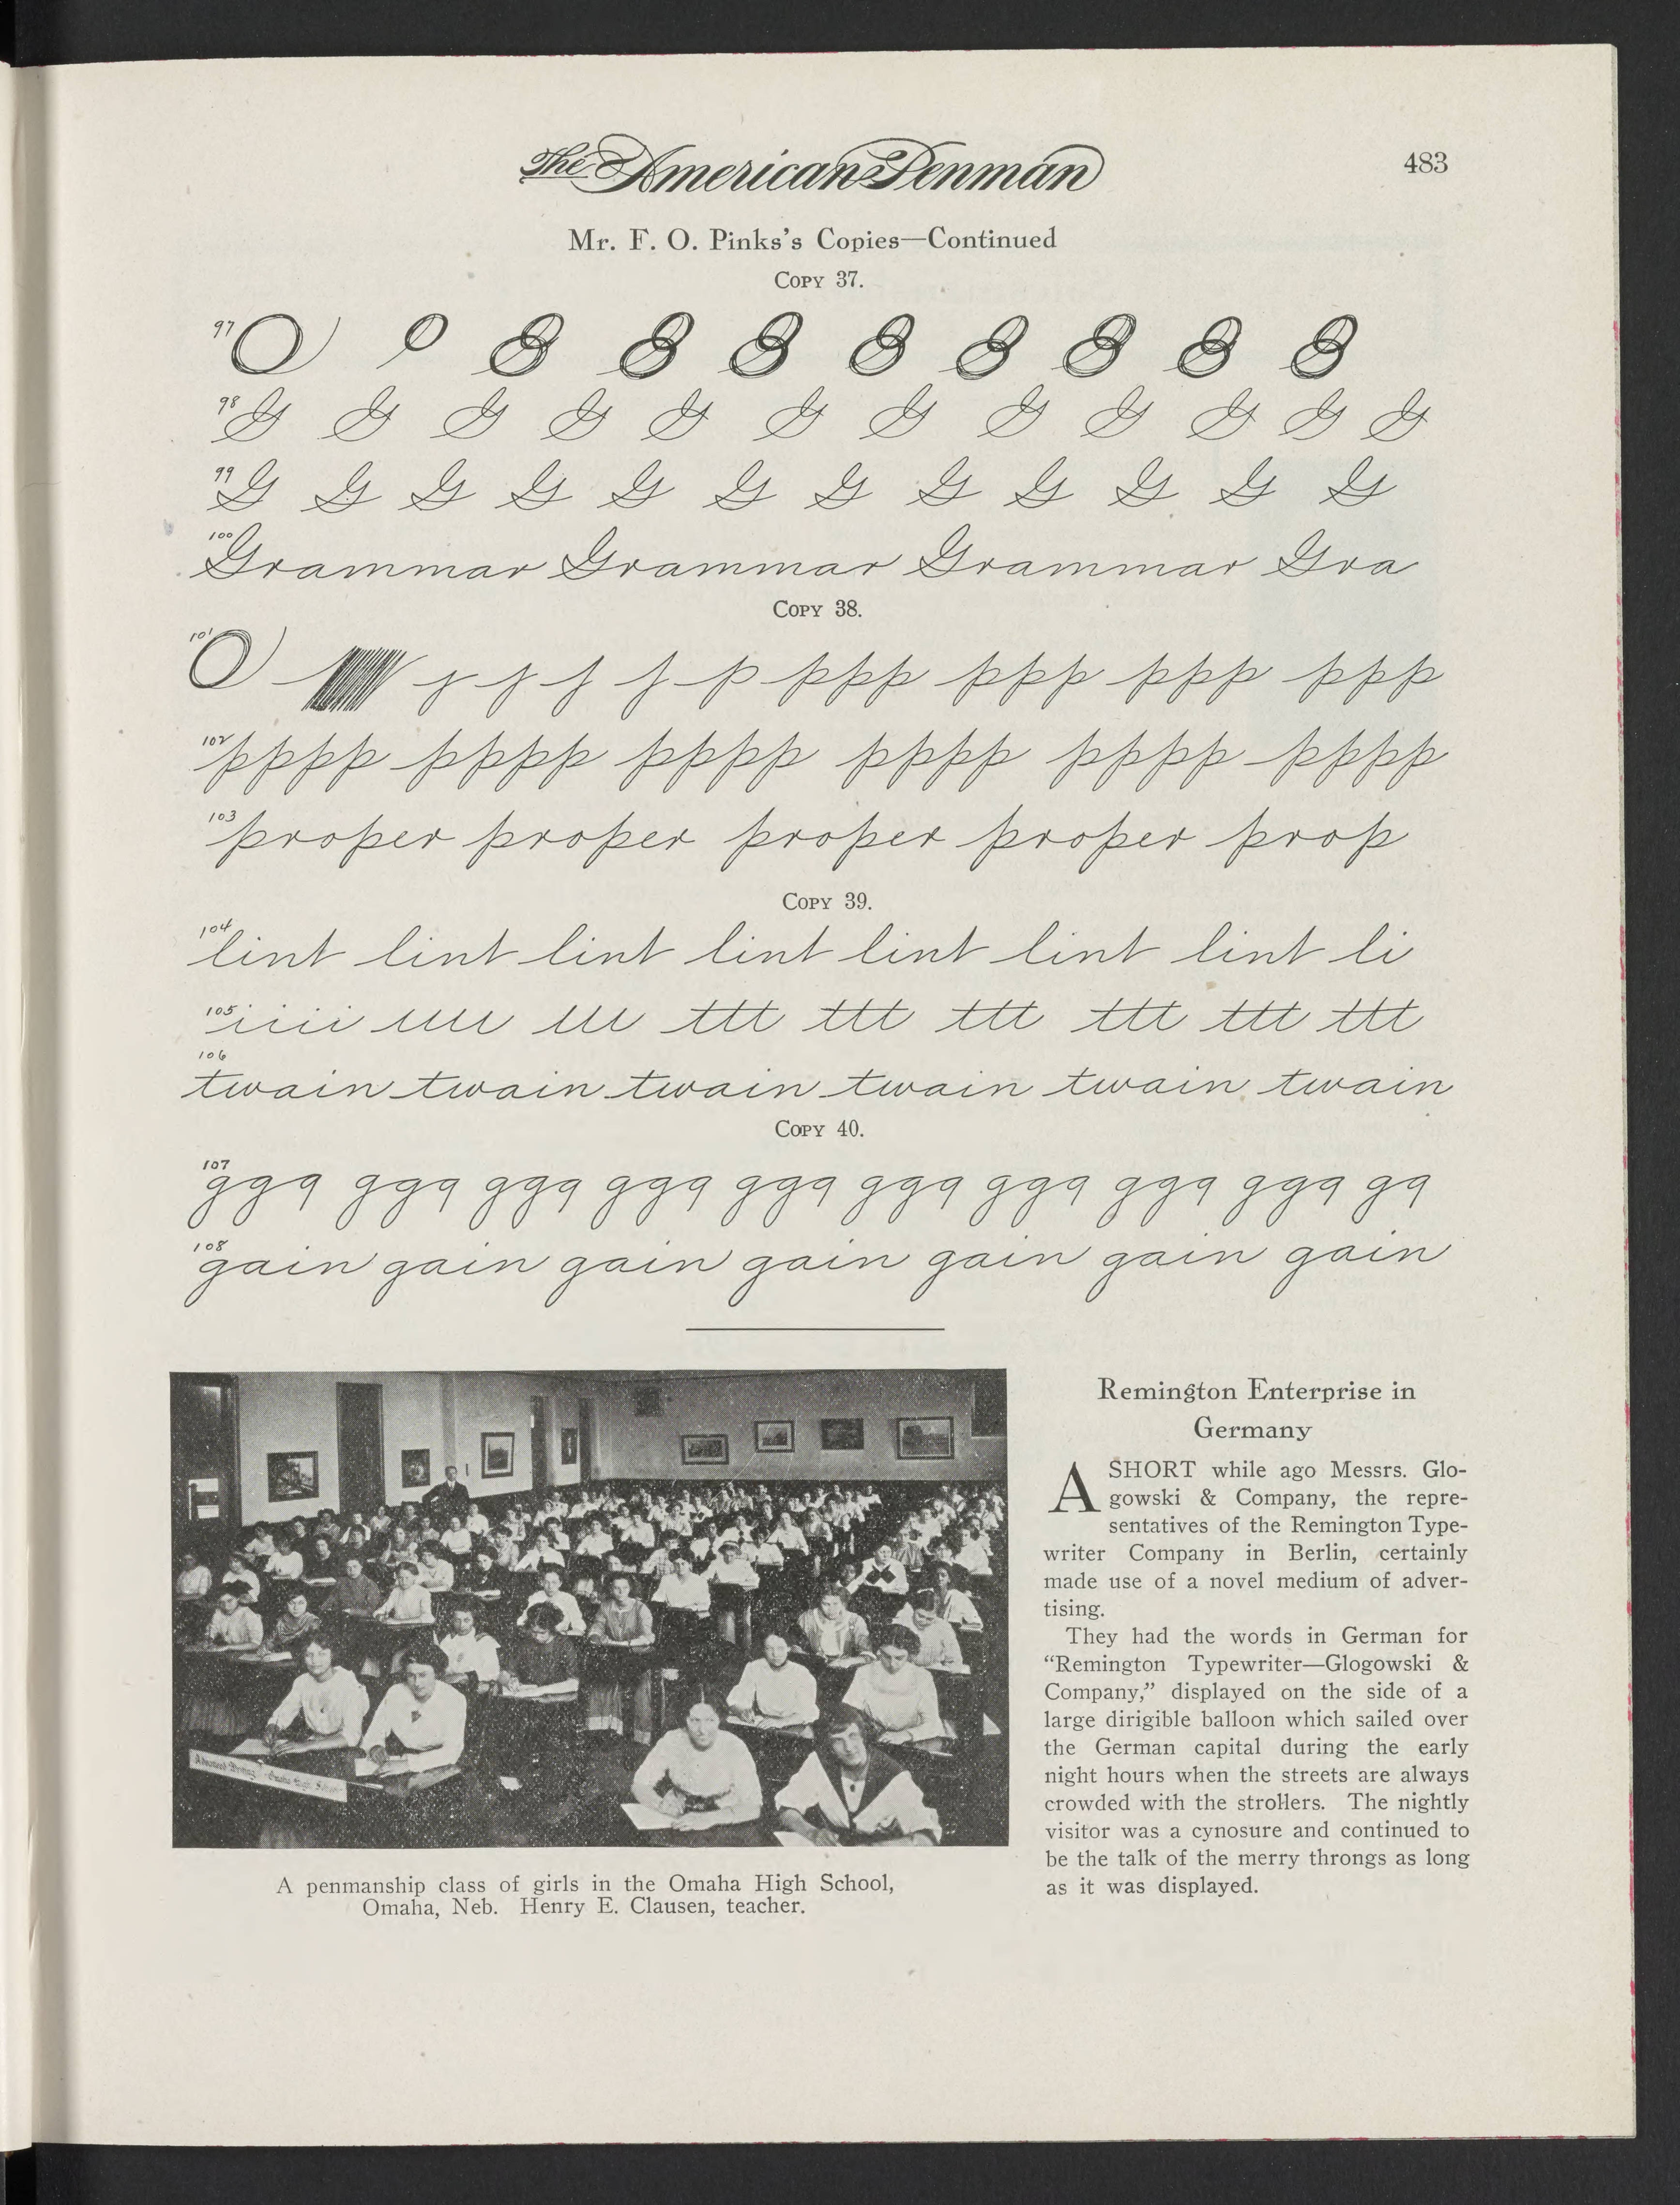 The American Penman
483
Mr. F. O. Pinks's Copies—Continued
Copy 37.
97
98 G G G G G G G G G G G G
99 G G G G G G G G G G G G
100 Grammar Grammar Grammar Gra
Copy 38.
101 O p ppp ppp ppp ppp
102 pppp pppp pppp pppp pppp pppp
103 proper proper proper proper prop
Copy 39.
104 lint lint lint lint lint lint lint li
105 iiii uu uu ttt ttt ttt ttt ttt ttt
106 twain twain twain twain twain twain
Copy 40.
107 ggg ggg ggg ggg ggg ggg ggg ggg ggg gg
108 gain gain gain gain gain gain gain
Advanced Writing Omaha High School
A penmanship class of girls in the Omaha High School,
Omaha, Neb. Henry E. Clausen, teacher.
Remington Enterprise in
Germany
A SHORT while ago Messrs. Glo-
gowski & Company, the repre-
sentatives of the Remington Type-
writer Company in Berlin, certainly
made use of a novel medium of adver-
tising.
They had the words in German for
“Remington Typewriter—Glogowski &
Company,” displayed on the side of a
large dirigible balloon which sailed over
the German capital during the early
night hours when the streets are always
crowded with the strollers. The nightly
visitor was a cynosure and continued to
be the talk of the merry throngs as long
as it was displayed.